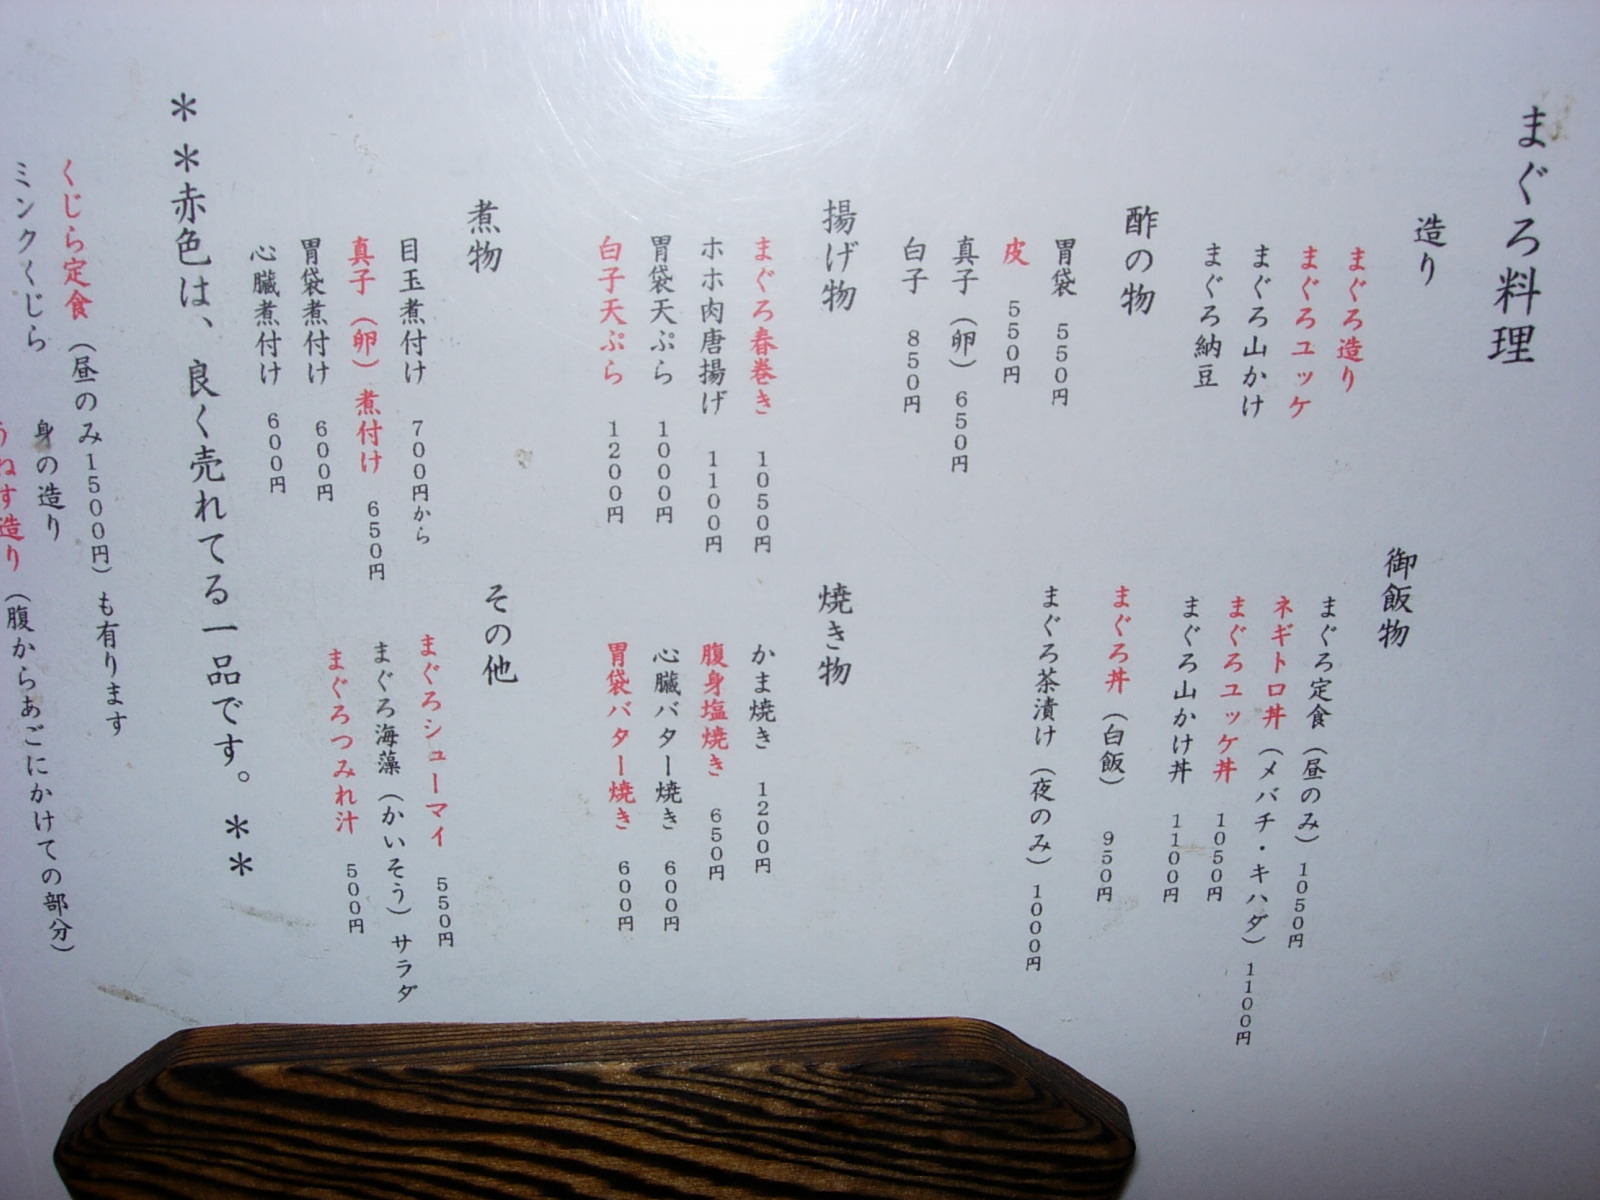 まぐろ料理
造り
まぐろ造り
まぐろユッケ
まぐろ山かけ
まぐろ納豆
御飯物
まぐろ定食（昼のみ）1050円
ネギトロ丼（メバチ・キハダ）1100円
まぐろユッケ丼 1050円
まぐろ山かけ丼 1100円
まぐろ丼（白飯） 950円
まぐろ茶漬け（夜のみ）1000円
酢の物
胃袋 550円
皮 550円
真子（卵）650円
白子 850円
揚げ物
まぐろ春巻き 1050円
ホホ肉唐揚げ 1100円
胃袋天ぷら 1000円
白子天ぷら 1200円
焼き物
かま焼き 1200円
腹身塩焼き 650円
心臓バター焼き 600円
胃袋バター焼き 600円
煮物
目玉煮付け 700円から
真子（卵）煮付け 650円
胃袋煮付け 600円
心臓煮付け 600円
その他
まぐろシューマイ 550円
まぐろ海藻（かいそう）サラダ
まぐろつみれ汁 500円
＊＊赤色は、良く売れてる一品です。＊＊
くじら定食（昼のみ1500円）も有ります
ミンクくじら 身の造り
うねす造り（腹からあごにかけての部分）